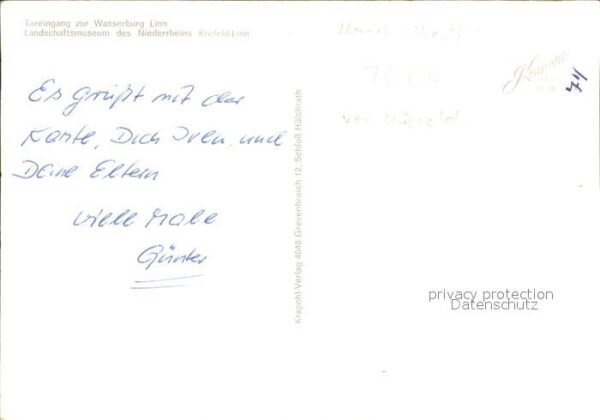 Toreingang zur Wasserburg Linn
Landschaftsmuseum des Niederrheins Krefeld-Linn
Es grüßt mit der
Karte, Dich Sven und
Deine Eltern
viele Male
Günter
Krapohl-Verlag 4048 Grevenbroich 12, Schloß Hülchrath
Krapohl
44
privacy protection
Datenschutz